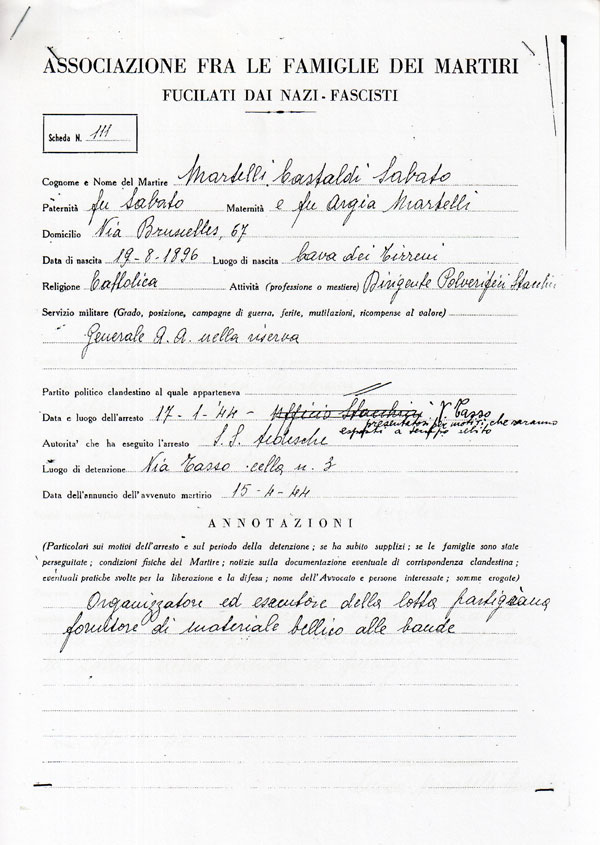 ASSOCIAZIONE FRA LE FAMIGLIE DEI MARTIRI
FUCILATI DAI NAZI-FASCISTI
Scheda N. 111
Cognome e Nome del Martire Martelli Castaldi Sabato
Paternità fu Sabato Maternità e fu Argia Martelli
Domicilio Via Bruxelles, 67
Data di nascita 19-8-1896 Luogo di nascita Cava dei Tirreni
Religione Cattolica Attività (professione o mestiere) Dirigente Polverifici Stacchini
Servizio militare (Grado, posizione, campagne di guerra, ferite, mutilazioni, ricompense al valore)
Generale A. A. nella riserva
Partito politico clandestino al quale apparteneva
Data e luogo dell'arresto 17-1-'44 - Ufficio Stacchini V. Tasso
presentatosi per motivi che saranno
esposti a tempo
Autorità che ha eseguito l'arresto S.S. tedesche
Luogo di detenzione Via Tasso cella n. 3
Data dell'annuncio dell'avvenuto martirio 15-4-44
ANNOTAZIONI
(Particolari sui motivi dell'arresto e sul periodo della detenzione; se ha subito supplizi; se le famiglie sono state
perseguitate; condizioni fisiche del Martire; notizie sulla documentazione eventuale di corrispondenza clandestina;
eventuali pratiche svolte per la liberazione e la difesa; nome dell'Avvocato e persone interessate; somme erogate)
Organizzatore ed esecutore della lotta partigiana
fornitore di materiale bellico alle bande